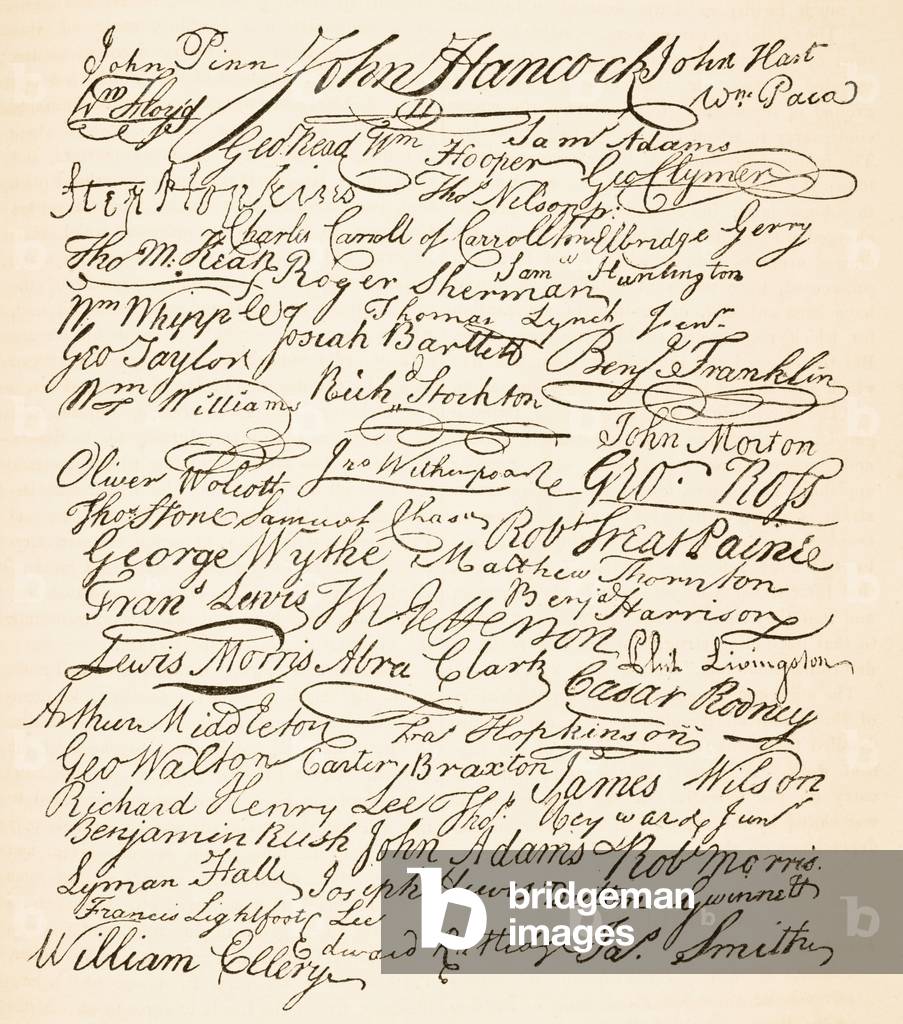 John Pinn John Hancock John Hart
Wm Floyd Wm. Paca
Geo Read Wm Hooper Saml Adams
Geo Clymer
Step Hopkins Thos Nelson jr.
Charles Carroll of Carrollton Elbridge Gerry
Tho M. Kean Roger Sherman Saml Huntington
Wm Whipple Thomas Lynch Junr
Geo Taylor Josiah Bartlett Benj Franklin
Wm Williams Richd Stockton
John Morton
Oliver Wolcott Jno Witherspoon Geo. Ross
Thos Stone Samuel Chase Robt Treat Paine
George Wythe Matthew Thornton
Frans Lewis Th Jefferson Benja Harrison
Lewis Morris Abra Clark Phil Livingston
Cæsar Rodney
Arthur Middleton Fras Hopkinson
Geo Walton Carter Braxton James Wilson
Richard Henry Lee Thos Heyward Junr
Benjamin Rush John Adams Robt Morris.
Lyman Hall Joseph Hewes Button Gwinnett
Francis Lightfoot Lee
William Ellery Edward Rutledge Jas. Smith
b bridgeman
images